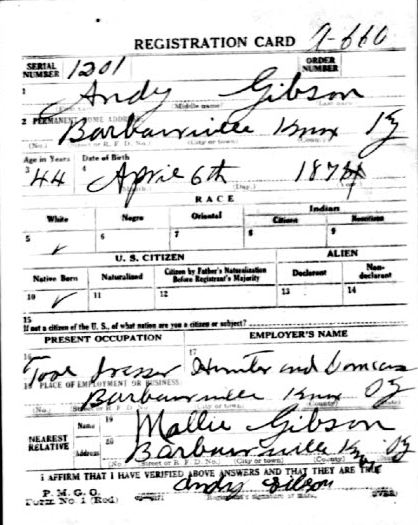 REGISTRATION CARD A-660
SERIAL NUMBER 1201 ORDER NUMBER
1 Andy Gibson
2 PERMANENT HOME ADDRESS:
Barbourville Knox Ky
(No.) (Street or R. F. D. No.) (City or town) (County)
Age in Years Date of Birth
3 44 4 April 6th 1874
(Day.)
RACE
White Negro Oriental Indian
Citizen Noncitizen
5 ✓ 6 7 8 9
U. S. CITIZEN ALIEN
Native Born Naturalized Citizen by Father's Naturalization Before Registrant's Majority Declarant Non-declarant
10 ✓ 11 12 13 14
15
If not a citizen of the U. S., of what nation are you a citizen or subject?
PRESENT OCCUPATION EMPLOYER'S NAME
16 Tool Dresser 17 Hunter and
18 PLACE OF EMPLOYMENT OR BUSINESS
Barbourville Knox Ky
(No.) (Street or R. F. D. No.) (City or town) (County)
NEAREST RELATIVE Name 19 Mallie Gibson
Address 20 Barbourville Knox Ky
(No.) (Street or R. F. D. No.) (City or town)
I AFFIRM THAT I HAVE VERIFIED ABOVE ANSWERS AND THAT THEY ARE TRUE
Andy Gibson
P. M. G. O.
Form No. 1 (Red) (Registrant's Signature or Mark) (OVER)